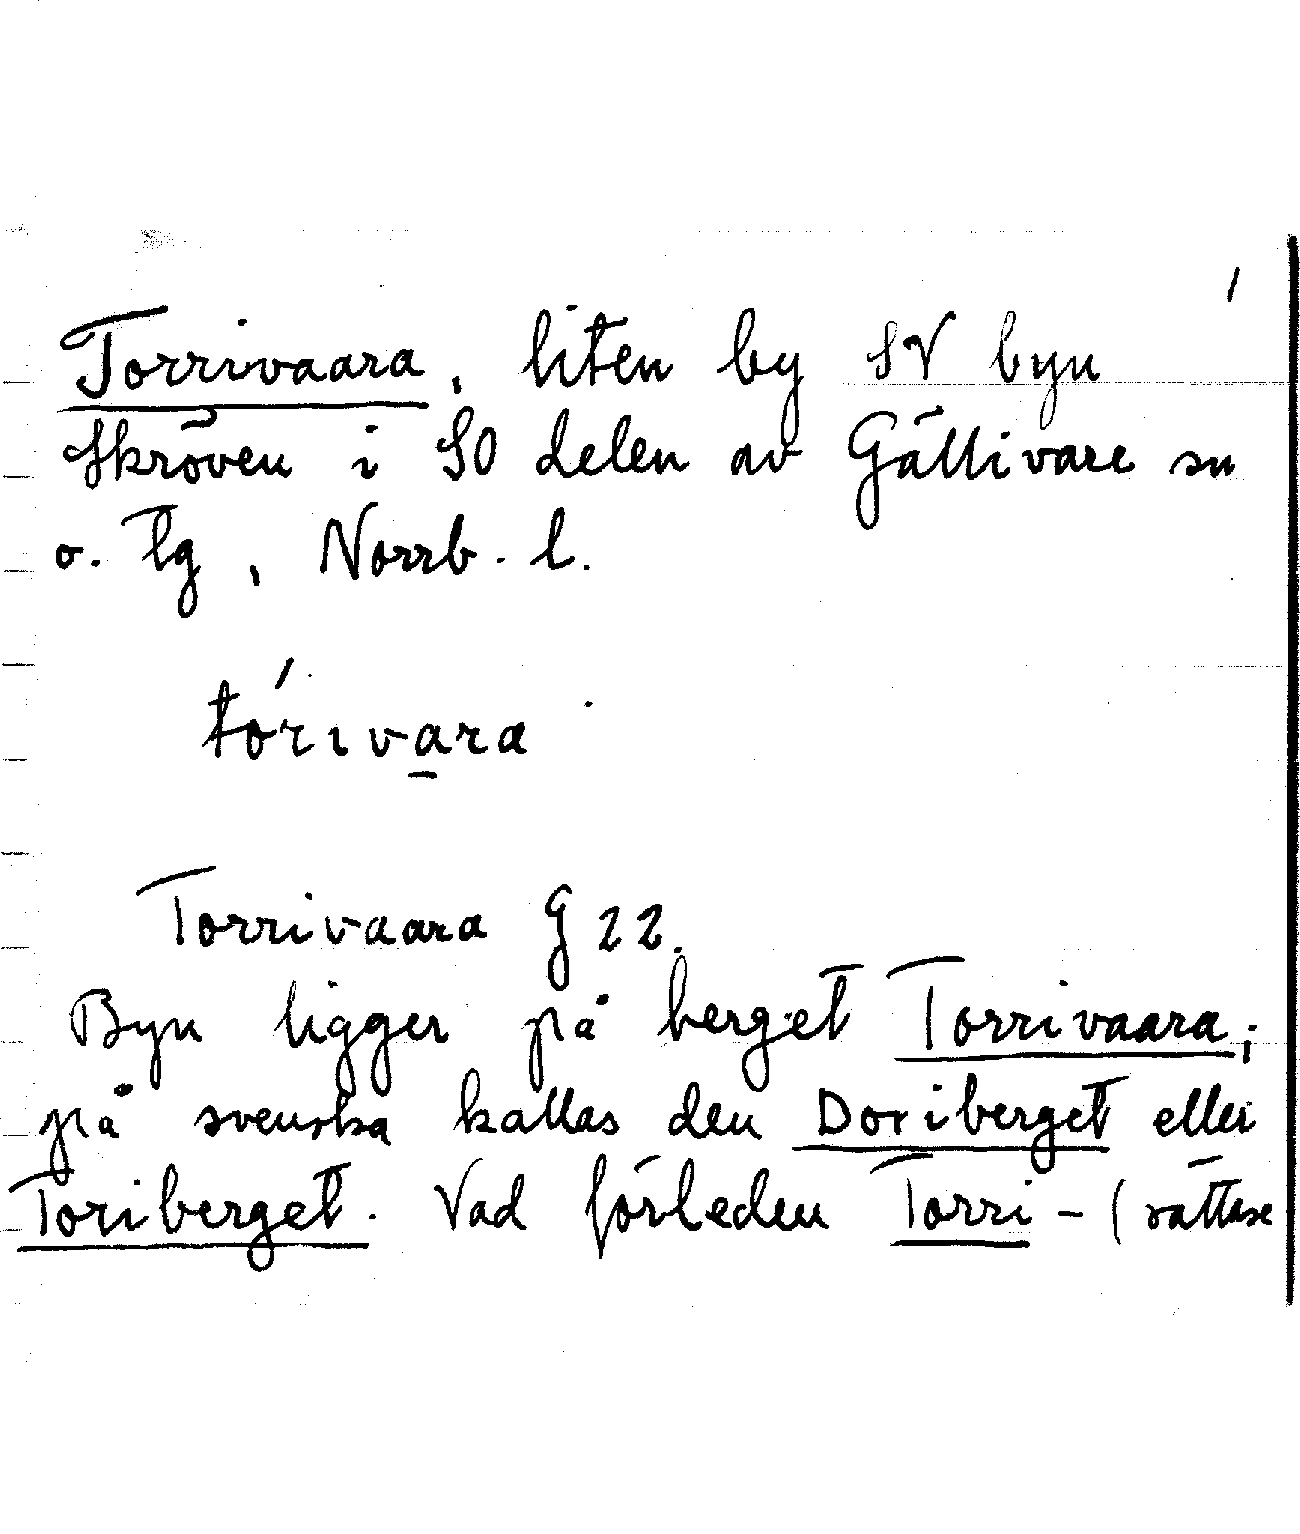 Torrivaara, liten by SV byn
Skröven i SO delen av Gällivare sn
o. tg, Norrb. l.
tórivara
Torrivaara G 22.
Byn ligger på berget Torrivaara;
på svenska kallas den Doriberget eller
Toriberget. Vad förleden Torri- (rättare